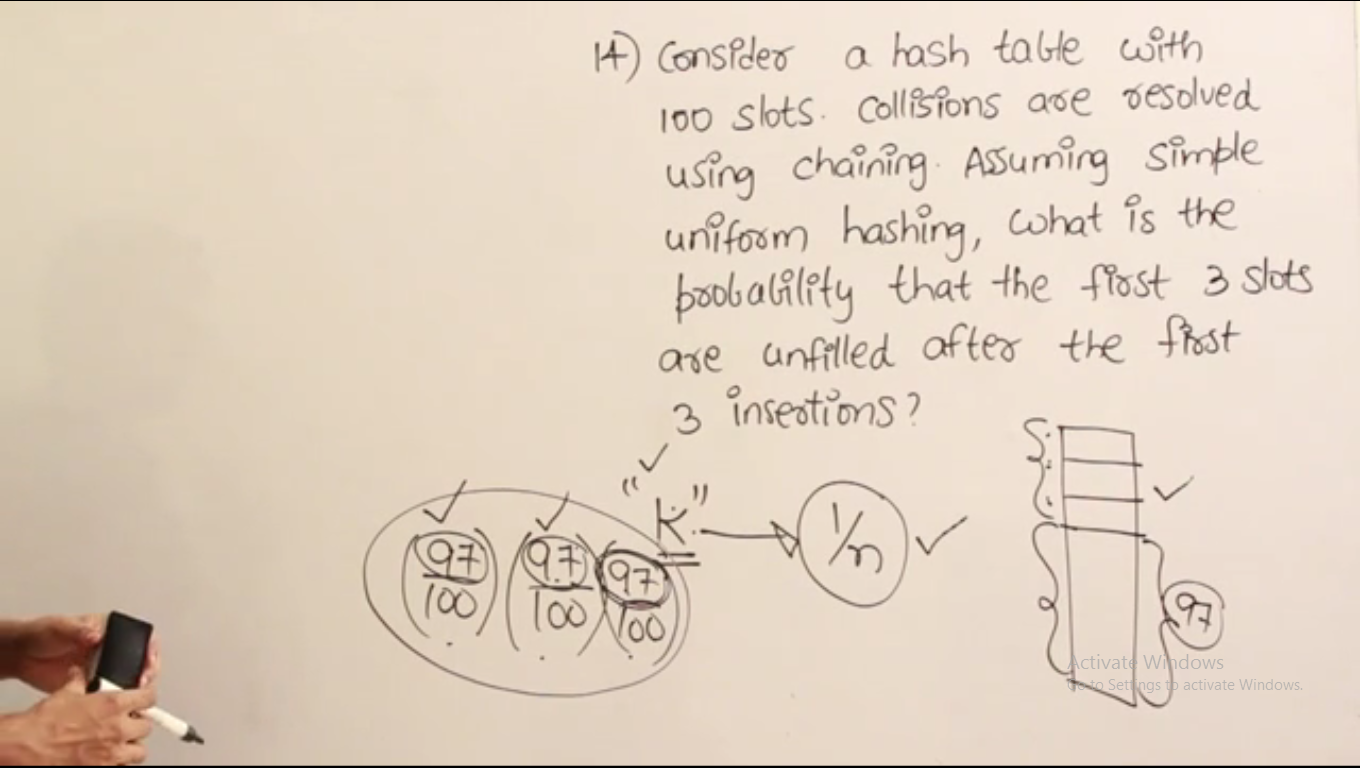 14) Consider a hash table with
100 slots. Collisions are resolved
using chaining. Assuming simple
uniform hashing, what is the
probability that the first 3 slots
are unfilled after the first
3 insertions?
"K" 1/n
(97/100) (97/100) (97/100)
97
Activate Windows
Go to Settings to activate Windows.